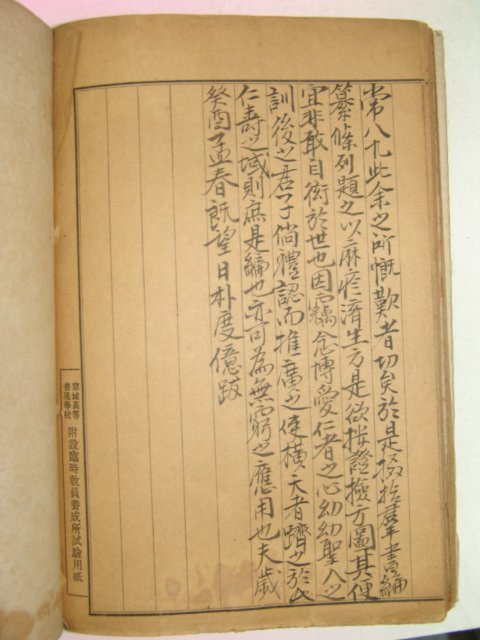 常八九此余之所慨歎者切矣於是掇拾羣書編
纂條列題之以麻疹濟生方是欲按證撿方圖其便
宜非敢自衒於世也因竊念博愛仁者之心幼幼聖人之
訓後之君子倘體認而推廣之使橫夭者躋之於
仁壽之域則庶是編也亦可為無窮之應用也夫歲
癸酉孟春旣望日朴度億跋
京城高等普通學校附設臨時敎員養成所試驗用紙